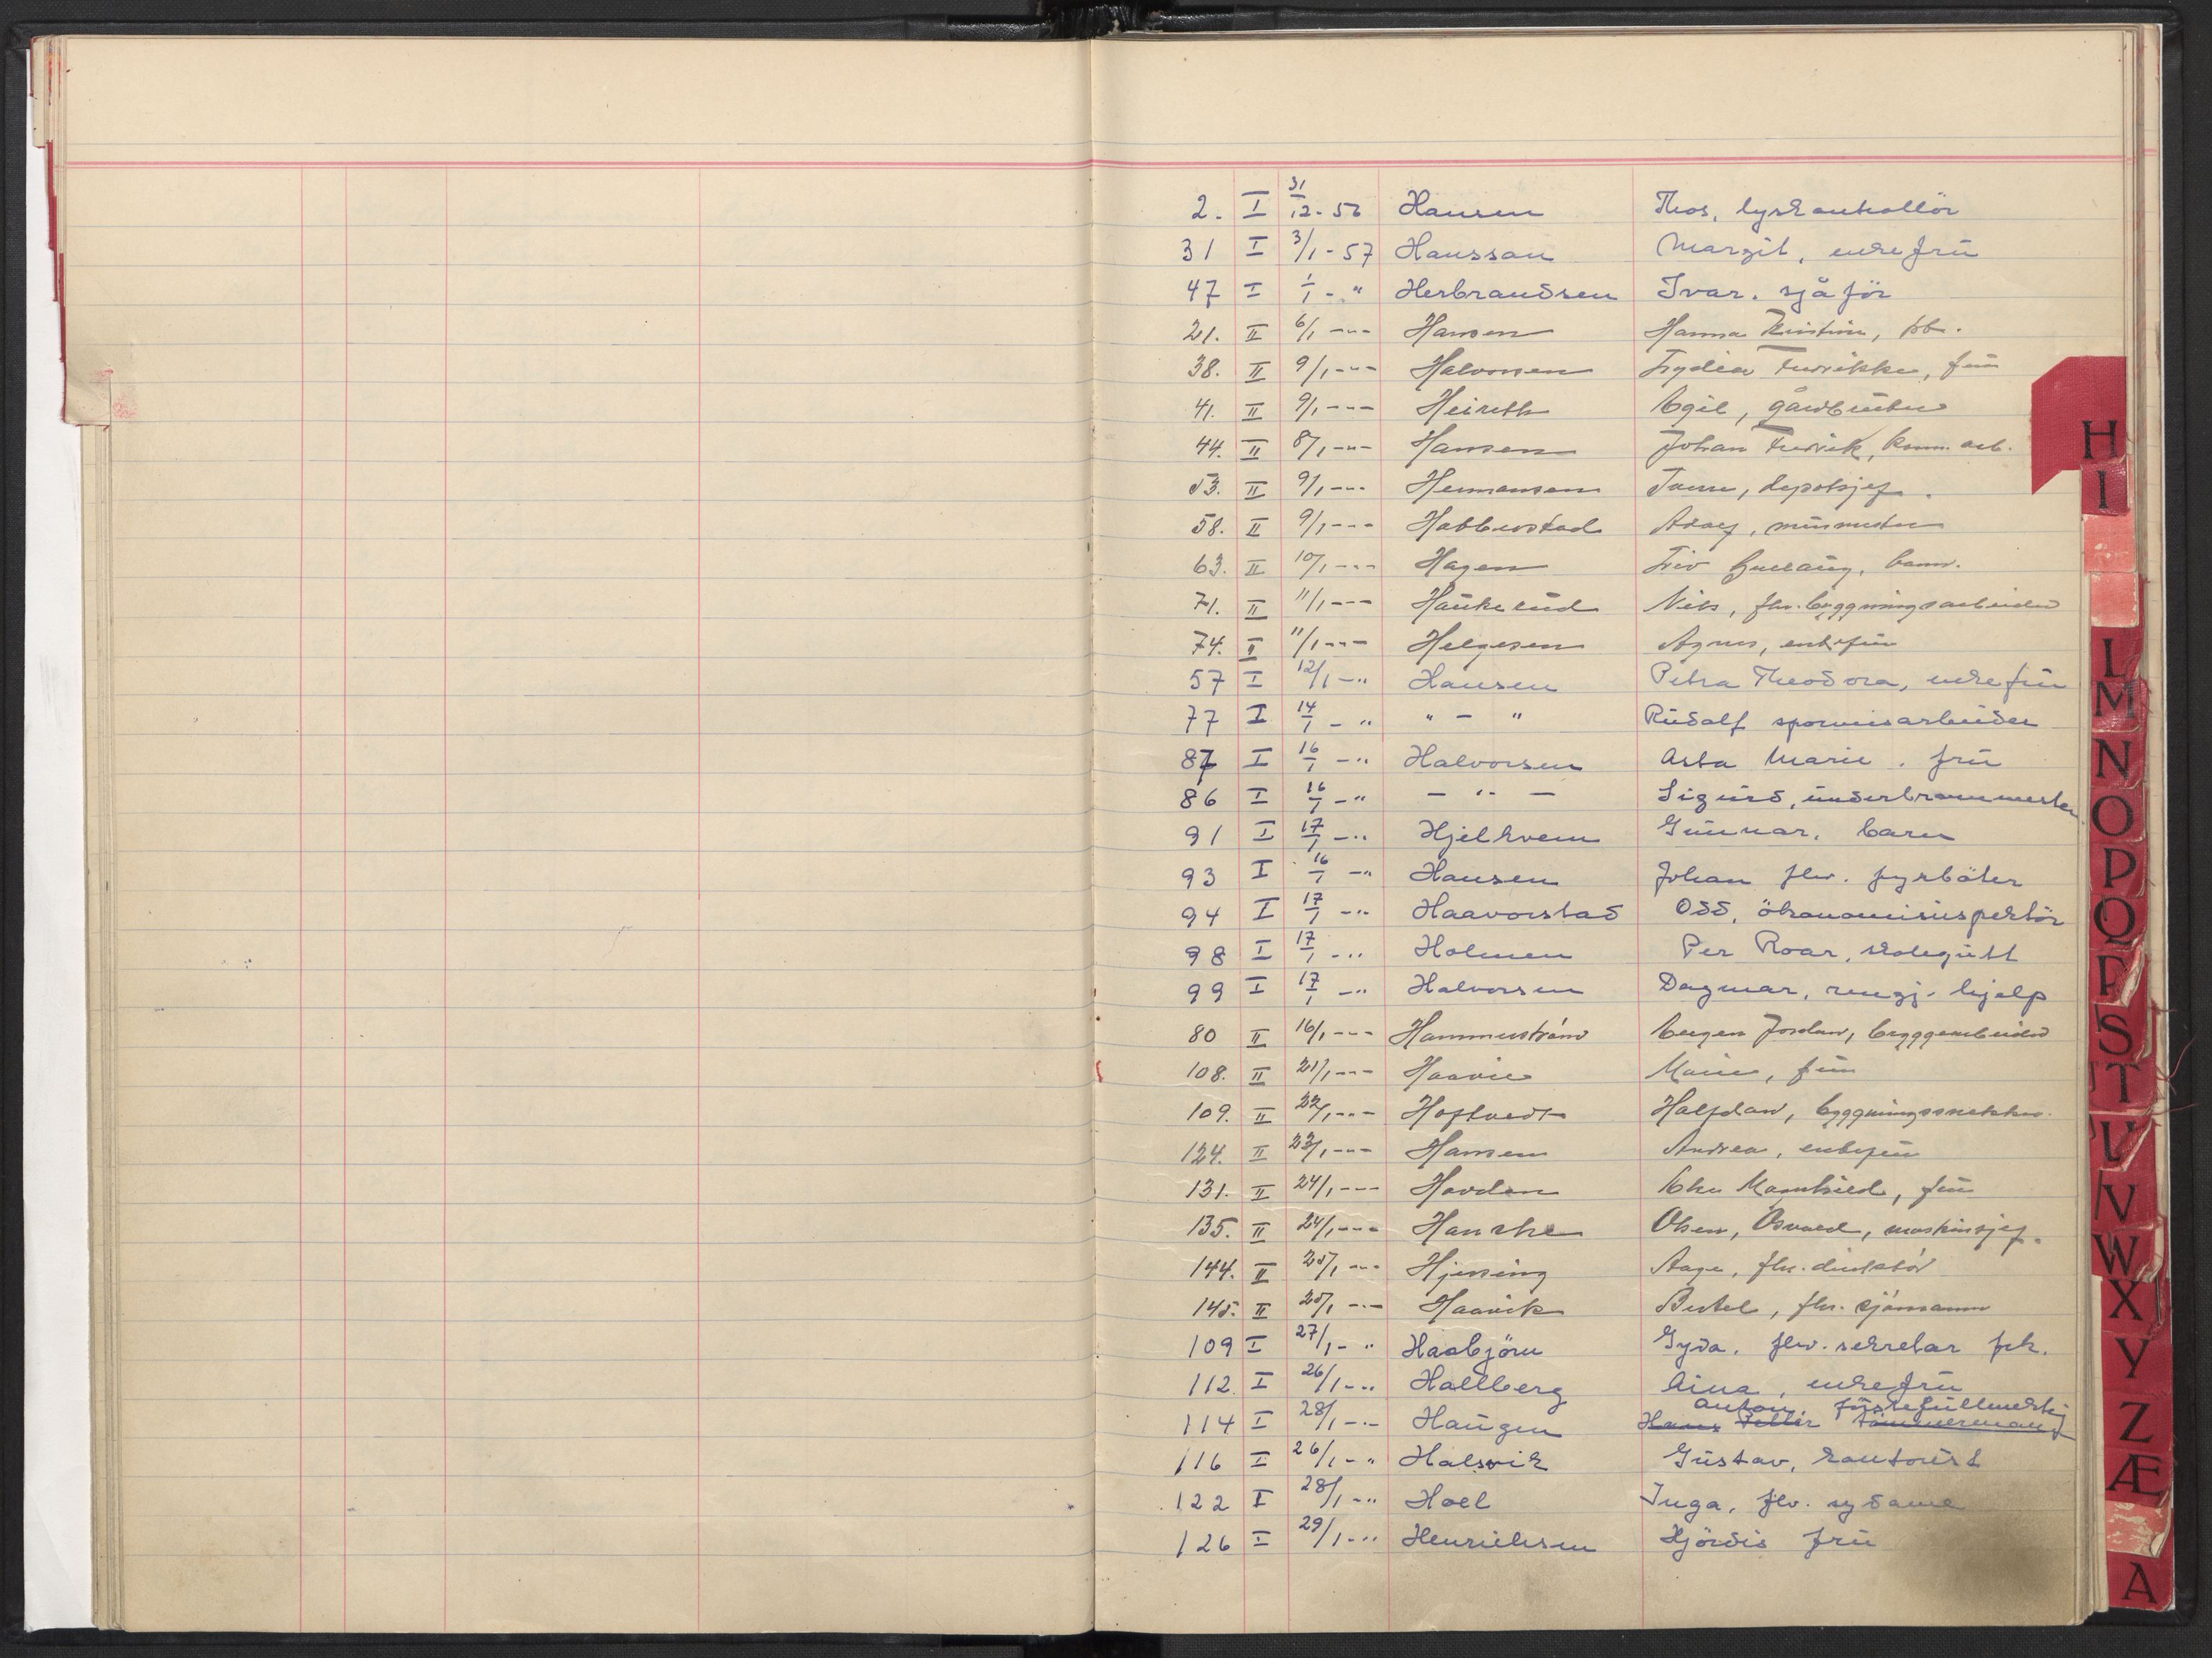 2. I 31/12-56 Hansen Thos, lyskontrollör
31 I 3/1-57 Hanssan Margit, enkefrü
47 I 1/1 - " Herbrandsen Ivar. sjåför
21. II 6/1 -"- Hansen Hanna Kristine,
38. II 9/1 -"- Halvorsen Lydia Fredrikke, frü
41. II 9/1 -"- Heireth Egil, gårdbrüker
44. II 8/1 -"- Hansen Johan Fredrik, komm. arb.
53. II 9/1 -"- Hermansen depotsjef.
58. II 9/1 -"- Habberstad Adolf, mürmester
63. II 10/1 -"- Hagen Liv barn.
71. II 11/1 -"- Haükerüd Nils, fhv. bygningsarbeider
74. II 11/1 -"- Helgesen Agnes, enkefrü
57 I 12/1 -" Hansen Petra Theodora, enkefrü
77 I 14/1 - " " - " Rüdolf sporveisarbeider
87 I 16/1 -" Halvorsen Asta Marie. frü
86 I 16/1 -" - " - Sigürd, ünderbrannmester
91 I 17/1 -" Hjelkrem Günnar. barn
93 I 16/1 -" Hansen Johan fhv. fyrböter
94 I 17/1 -" Haavorstad Odd, ökonomiinspektör
98 I 17/1 -" Holmen Per Roar, skolegütt
99 I 17/1 -" Halvorsen Dagmar, rengj. hjelp
80 II 16/1 -"- Hammerstrånd Jordan, bryggearbeider
108. II 21/1 -"- Haavie Marie, frü
109. II 22/1 -"- Hoftvedt Halfdan, bygningssnekker.
124. II 23/1 -"- Hansen Andrea, enkefrü
131. II 24/1 -"- Hovden frü
135. II 24/1 -"- Hansche Olsen, Osvald, maskinsjef.
144. II 25/1 -"- Hjessing Aage, fhv. direktör
145. II 25/1 -"- Haavik Bertel, fhv. sjömann
109 I 27/1 - " Haabjörn Gyda. fhv. sekretær frk.
112. I 26/1 -" Hallberg Aina, enkefrü
114 I 28/1 -" Haügen Hans Petter tömmermann Anton, förstefüllmektig
116 I 26/1 - " Halsvik Güstav, kontorist
122 I 28/1 -" Hoel Inga. fhv. sydame
126 I 29/1 -" Henriksen Hjördis frü
H
I
L
M
N
O
P
Q
R
S
T
U
V
W
X
Y
Z
Æ
A